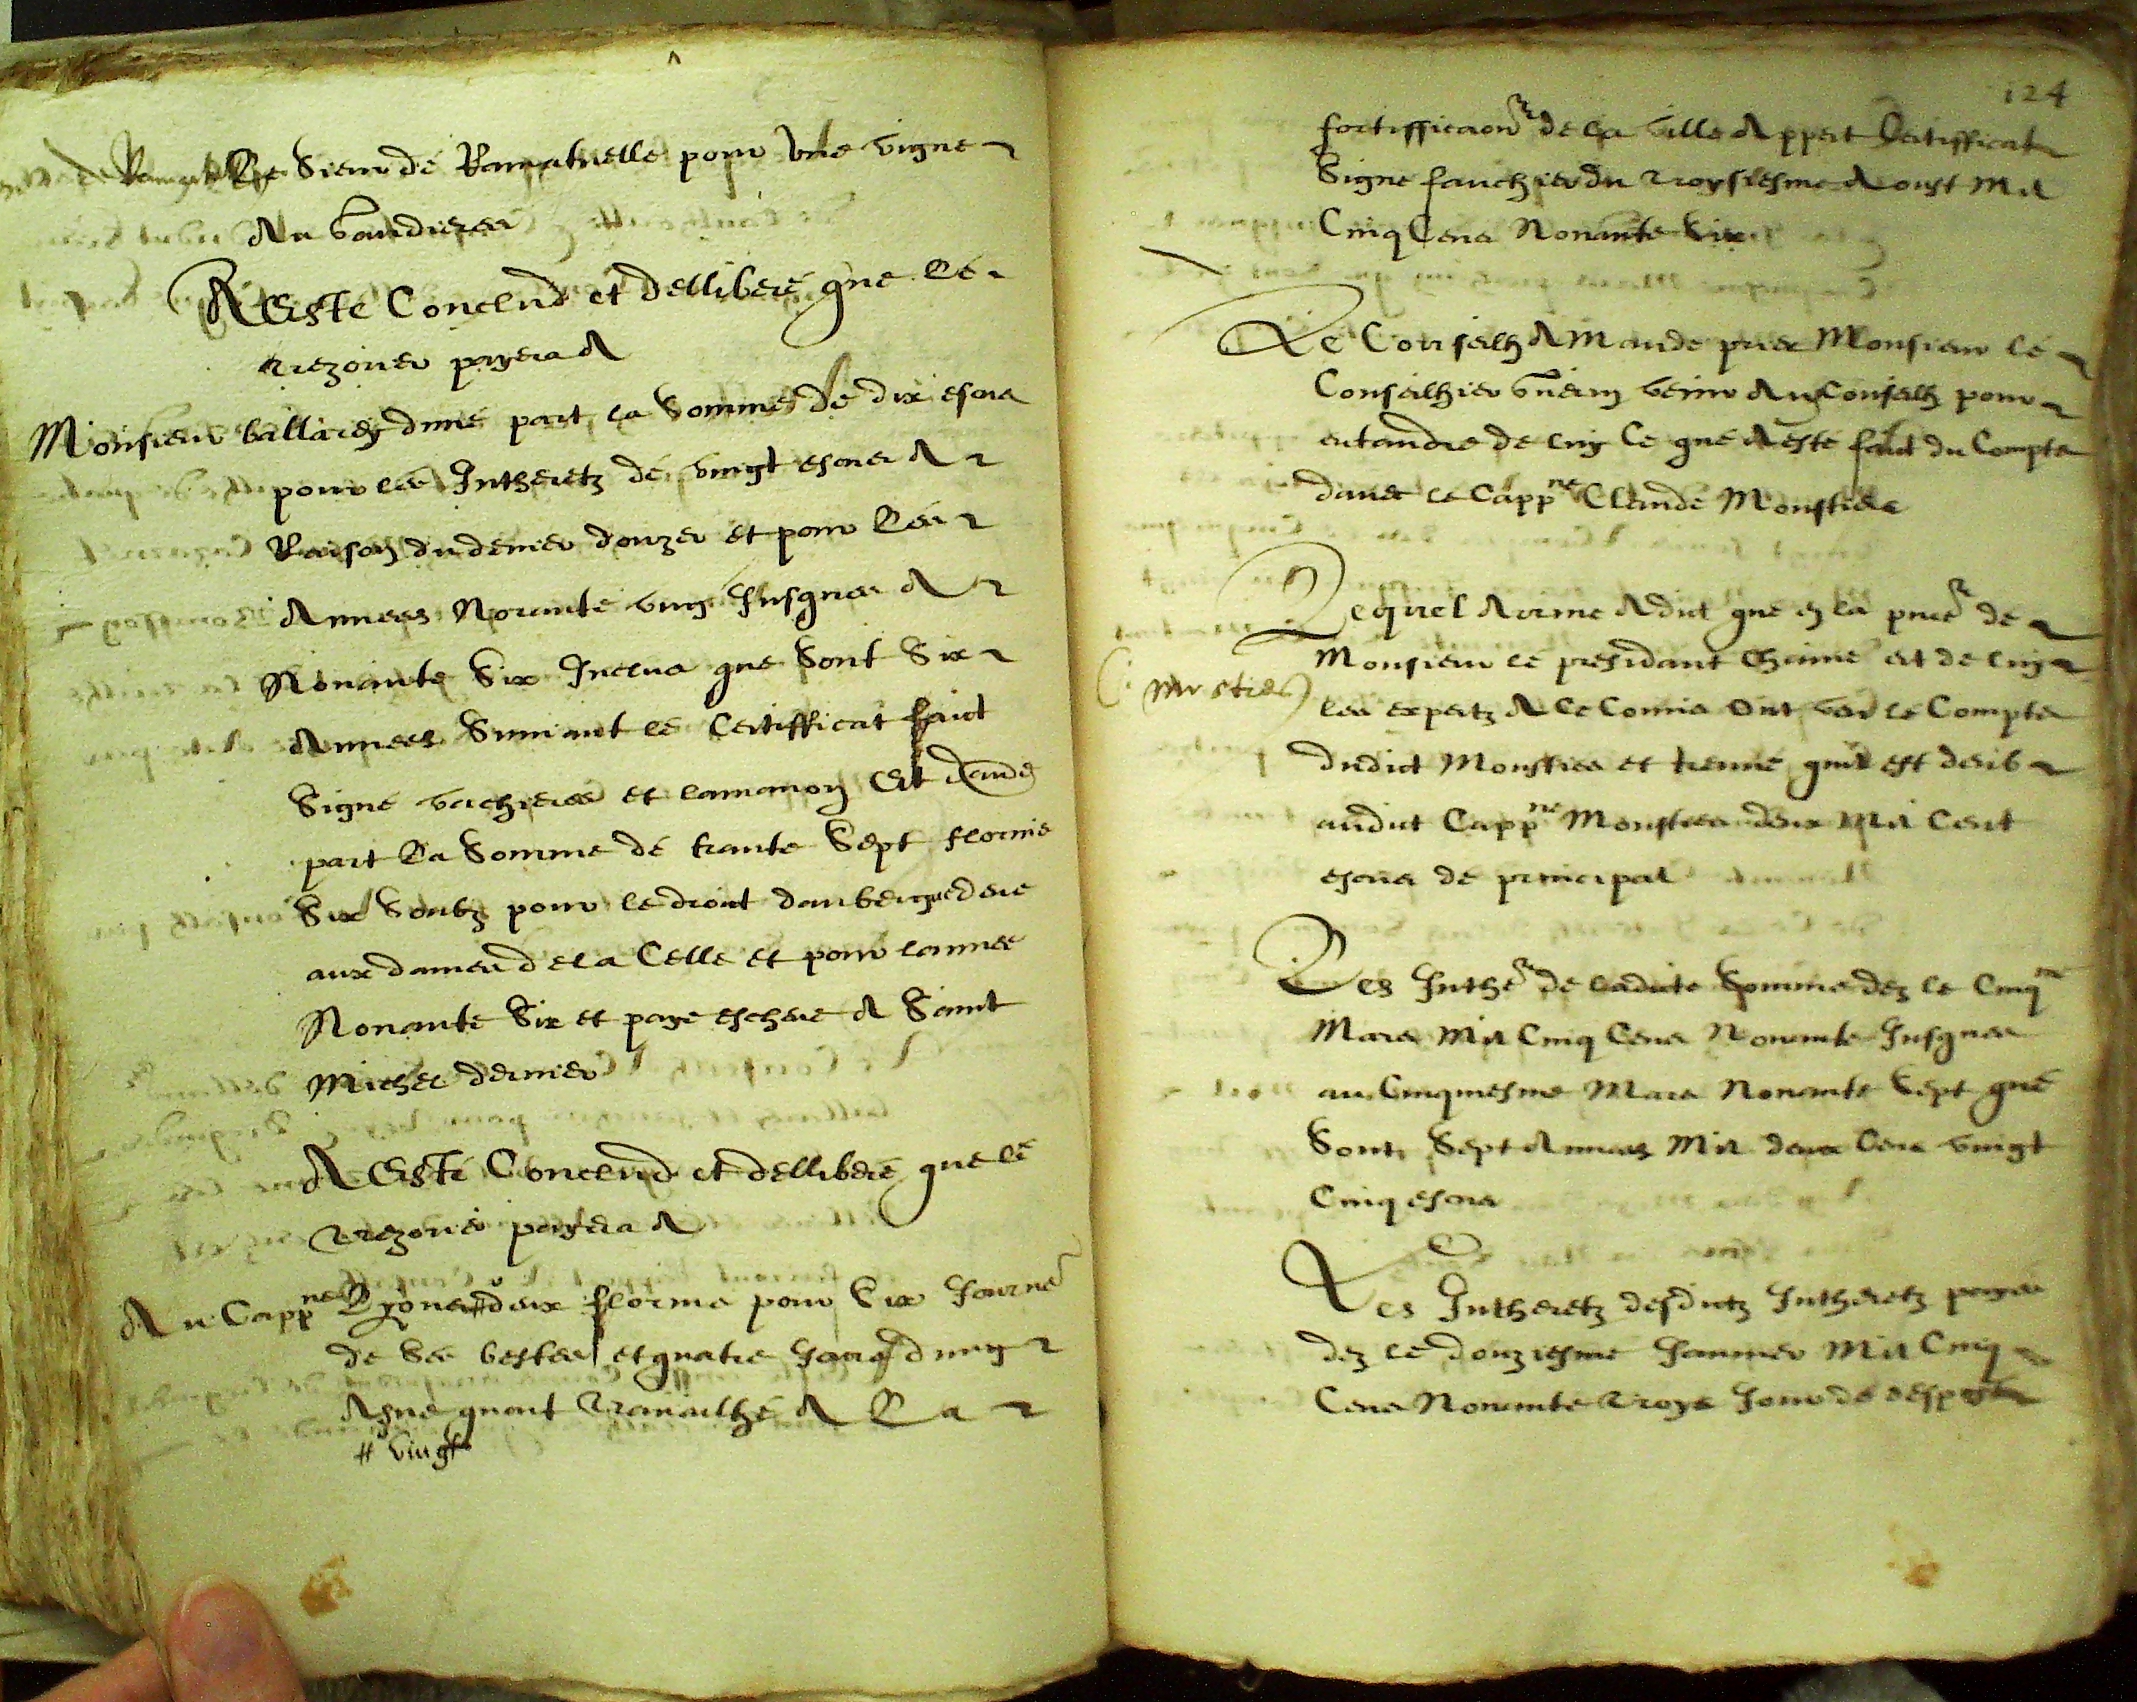 Le Sieur de Ramatuelle pour une vigne
Au vaudieres
A Esté Conclud et dellibere que le
trezorier payera A
Monsieur ballardy dune part la Somme de dix escus
pour les Intheretz de vingt escus A
Raison du denier douzes et pour Les
Annees Nonante ung Jusques A
Nonante Six Inclus que Sont Six
Annees Suivant le Certifficat faict
Signé vachieres et lamanon Et daud
part La Somme de trante Sept florins
Six Soubz pour le droict daubergue deue
aux dames de la Celle et pour lannee
Nonante Six et paye escheue A Sainct
Michel dernier
A Esté Conclud et dellibere que le
trezorier payera A
Au Capp^ne deux florins pour Six Journe
de Ses bestes et quatre dung
Asne quont travailhé A La
# vingt
124
fortifficaon de la ville Appert Certifficat
Signe fauchier du troysiesme Aoust Mil
Cinq Cens Nonante Six
Le Conseilh A Mande prier Monsieur le
Conseilhier venir Au Conseilh pour
entandre de luy Ce que A esté faict du Compte
davec le Capp^ne Claude Monstiers
Lequel Arrive A dict que en la pnce de
Monsieur le presidant Chaine et de luy
Les expertz A Ce Comis Ont veu le Compte
dudict Monstiers et treuve quil est deub
audict Capp^ne Monstiers deux Mil Cent
escus de principal
Les Inthe de ladicte Somme dez le Cinq
Mars Mil Cinq Cens Nonante Jusques
au Cinquiesme Mars Nonante Sept que
Sont Sept Annees Mil deux Cens vingt
Cinq escus
Les Intheretz desdictz Intheretz payes
dez le douziesme Janvier Mil Cinq
Cens Nonante troys Jour de